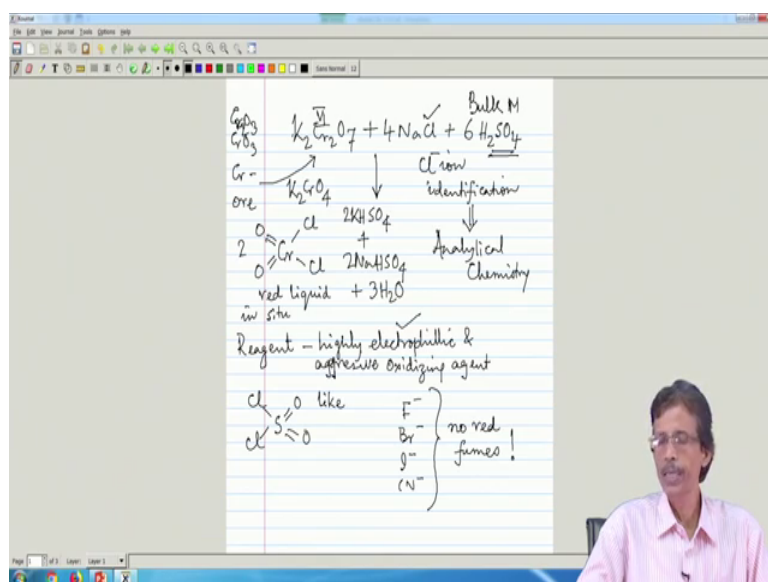 Journal
File Edit View Journal Tools Options Help
Sans Normal 12
Bulk M
VI
K2Cr2O7 + 4NaCl + 6H2SO4
CrO3
Cr-ore
K2CrO4
Cl- ion identification
⇓
Analytical Chemistry
2KHSO4
+
2NaHSO4
+ 3H2O
2 O O Cr Cl Cl
red liquid
in situ
Reagent – highly electrophillic &
aggresive oxidizing agent
Cl Cl S O O like
F-
Br-
I-
CN-
no red
fumes !
Page 1 of 3 Layer: Layer 1